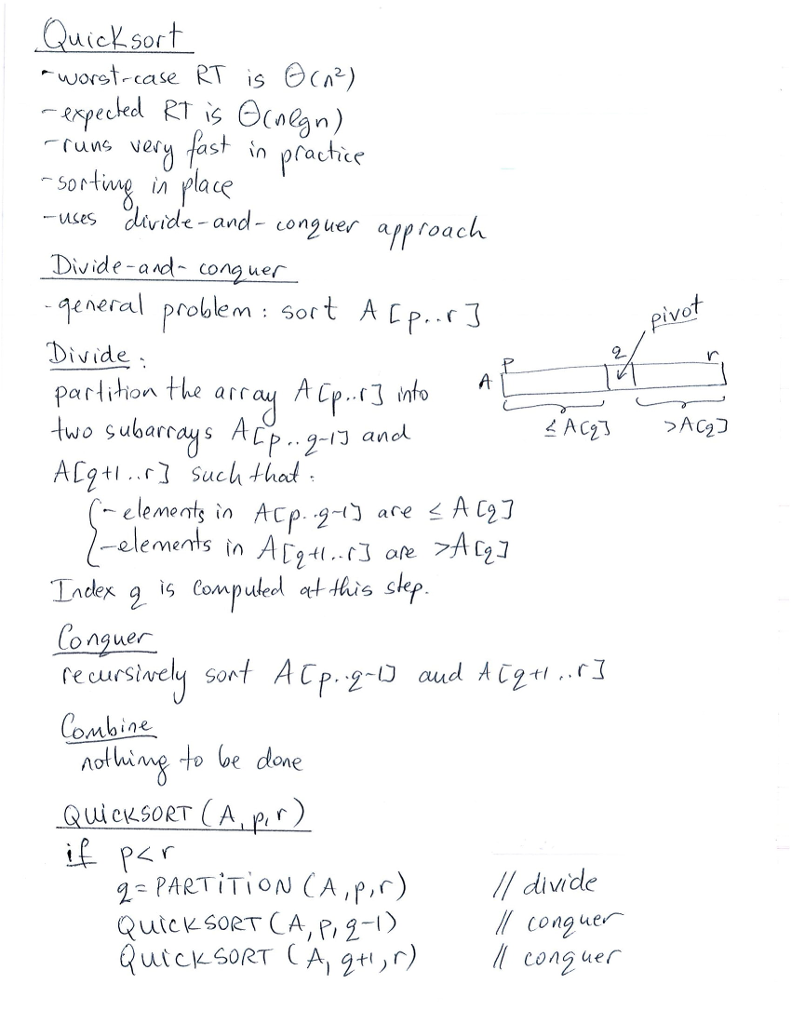 Quicksort
- worst-case RT is Θ(n²)
- expected RT is Θ(nlgn)
- runs very fast in practice
- sorting in place
- uses divide-and-conquer approach
Divide-and-conquer
- general problem: sort A[p..r]
pivot
Divide:
p q r
A
partition the array A[p..r] into
two subarrays A[p..q-1] and
≤A[q] >A[q]
A[q+1..r] such that:
- elements in A[p..q-1] are ≤ A[q]
- elements in A[q+1..r] are >A[q]
Index q is computed at this step.
Conquer
recursively sort A[p..q-1] and A[q+1..r]
Combine
nothing to be done
QUICKSORT(A,p,r)
if p<r
q=PARTITION(A,p,r) // divide
QUICKSORT(A,p,q-1) // conquer
QUICKSORT(A,q+1,r) // conquer